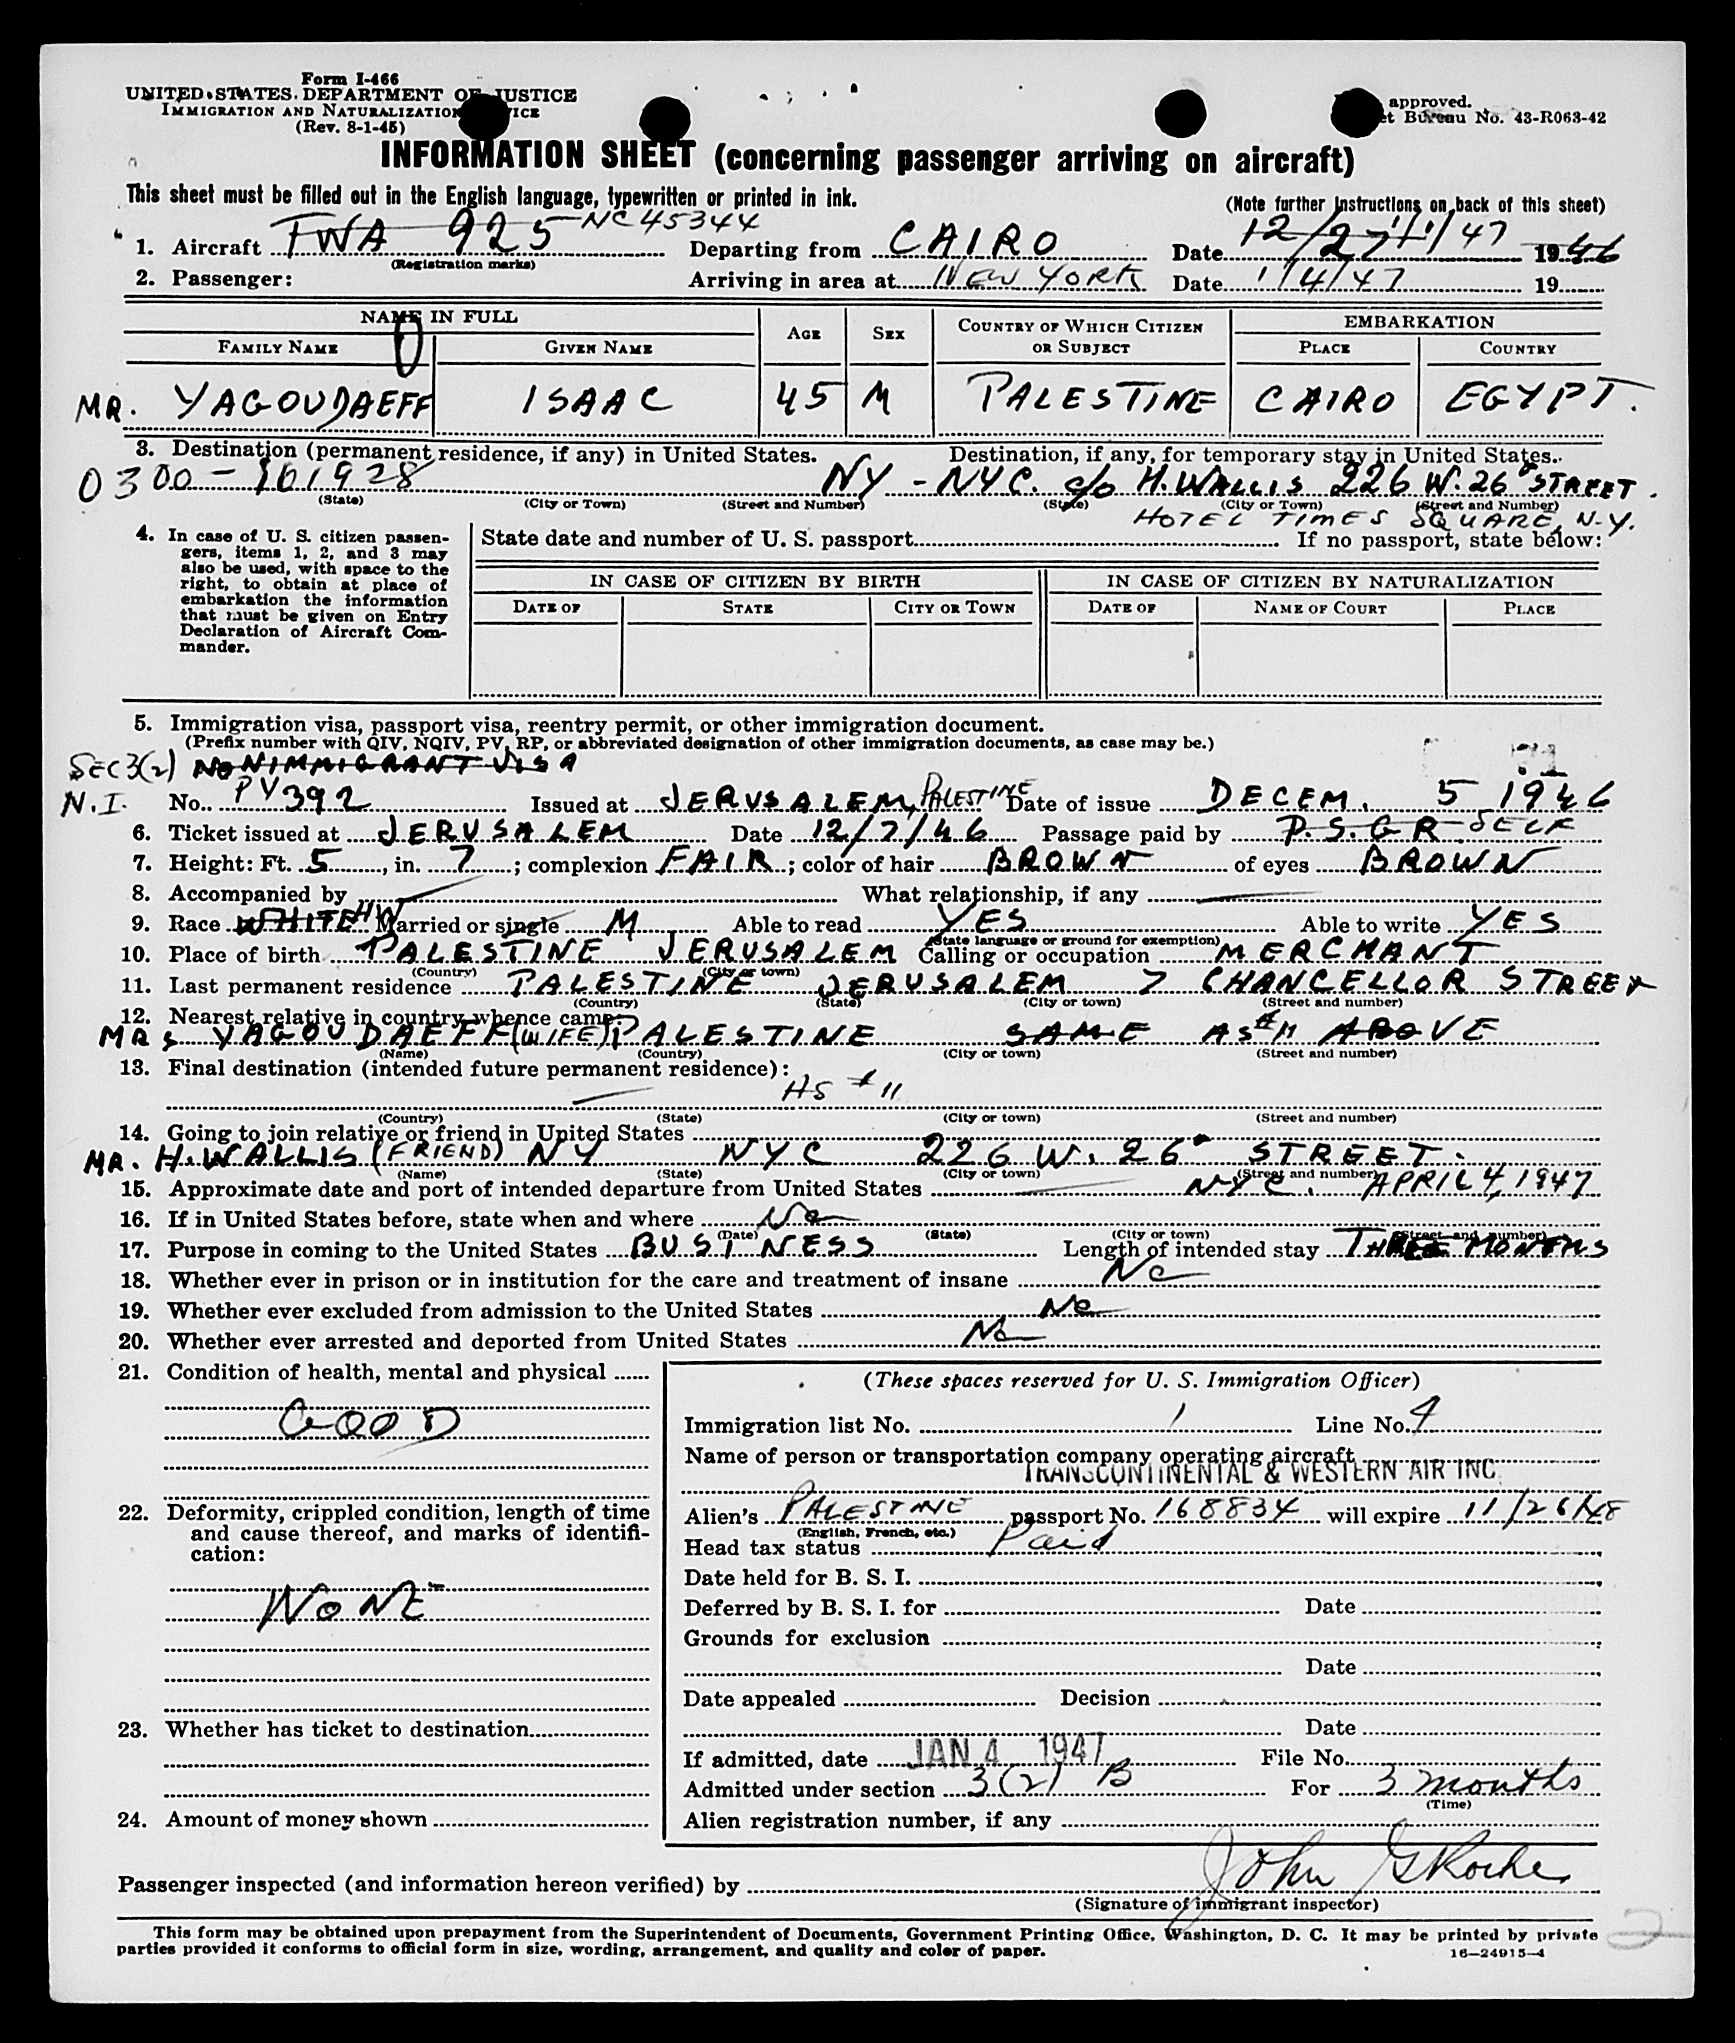 Form I-466
UNITED STATES DEPARTMENT OF JUSTICE
IMMIGRATION AND NATURALIZATION SERVICE
(Rev. 8-1-45)
approved.
Bureau No. 43-R063-42
INFORMATION SHEET (concerning passenger arriving on aircraft)
This sheet must be filled out in the English language, typewritten or printed in ink.
(Note further instructions on back of this sheet)
1. Aircraft TWA 925 NC 45344 Departing from CAIRO Date 12/27 1/1/47 1946
(Registration marks)
2. Passenger: Arriving in area at NEW YORK Date 1/4/47 19
NAME IN FULL AGE SEX COUNTRY OF WHICH CITIZEN OR SUBJECT EMBARKATION
FAMILY NAME GIVEN NAME PLACE COUNTRY
MR. YAGOUDAEFF ISAAC 45 M PALESTINE CAIRO EGYPT.
3. Destination (permanent residence, if any) in United States. Destination, if any, for temporary stay in United States.
0300 - 101928 NY - NYC. c/o H. WALLIS 226 W. 26 STREET.
(State) (City or Town) (Street and Number) (State) (City or Town) (Street and Number)
HOTEL TIMES SQUARE, N.Y.
4. In case of U. S. citizen passengers, items 1, 2, and 3 may also be used, with space to the right, to obtain at place of embarkation the information that must be given on Entry Declaration of Aircraft Commander.
State date and number of U. S. passport If no passport, state below:
IN CASE OF CITIZEN BY BIRTH IN CASE OF CITIZEN BY NATURALIZATION
DATE OF STATE CITY OR TOWN DATE OF NAME OF COURT PLACE
5. Immigration visa, passport visa, reentry permit, or other immigration document.
(Prefix number with QIV, NQIV, PV, RP, or abbreviated designation of other immigration documents, as case may be.)
SEC 3(2) NONIMMIGRANT VISA
N.I. No. PV 392 Issued at JERUSALEM, PALESTINE Date of issue DECEM. 5 1946
6. Ticket issued at JERUSALEM Date 12/7/46 Passage paid by P.S.G.R. SELF
7. Height: Ft. 5, in. 7; complexion FAIR; color of hair BROWN of eyes BROWN
8. Accompanied by What relationship, if any
9. Race WHITE HW Married or single M Able to read YES Able to write YES
(State language or ground for exemption)
10. Place of birth PALESTINE JERUSALEM Calling or occupation MERCHANT
(Country) (City or town)
11. Last permanent residence PALESTINE JERUSALEM 7 CHANCELLOR STREET
(Country) (State) (City or town) (Street and number)
12. Nearest relative in country whence came:
MRS YAGOUDAEFF (WIFE) PALESTINE SAME AS #11 ABOVE
(Name) (Country) (City or town) (Street and number)
13. Final destination (intended future permanent residence):
AS #11
(Country) (State) (City or town) (Street and number)
14. Going to join relative or friend in United States
MR. H. WALLIS (FRIEND) NY NYC 226 W. 26 STREET.
(Name) (State) (City or town) (Street and number)
15. Approximate date and port of intended departure from United States NYC. APRIL 4, 1947
16. If in United States before, state when and where No
(Date) (State) (City or town) (Street and number)
17. Purpose in coming to the United States BUSINESS Length of intended stay THREE MONTHS
18. Whether ever in prison or in institution for the care and treatment of insane No
19. Whether ever excluded from admission to the United States No
20. Whether ever arrested and deported from United States No
21. Condition of health, mental and physical
GOOD
22. Deformity, crippled condition, length of time and cause thereof, and marks of identification:
NONE
23. Whether has ticket to destination
24. Amount of money shown
(These spaces reserved for U. S. Immigration Officer)
Immigration list No. 1 Line No. 9
Name of person or transportation company operating aircraft
TRANSCONTINENTAL & WESTERN AIR INC.
Alien's PALESTINE passport No. 168834 will expire 11/26/48
(English, French, etc.)
Head tax status Paid
Date held for B. S. I.
Deferred by B. S. I. for Date
Grounds for exclusion
Date
Date appealed Decision
Date
If admitted, date JAN 4 1947 File No.
Admitted under section 3(2) B For 3 months
(Time)
Alien registration number, if any
Passenger inspected (and information hereon verified) by John G Roche
(Signature of immigrant inspector)
This form may be obtained upon prepayment from the Superintendent of Documents, Government Printing Office, Washington, D. C. It may be printed by private
parties provided it conforms to official form in size, wording, arrangement, and quality and color of paper.
16—24915-4
2